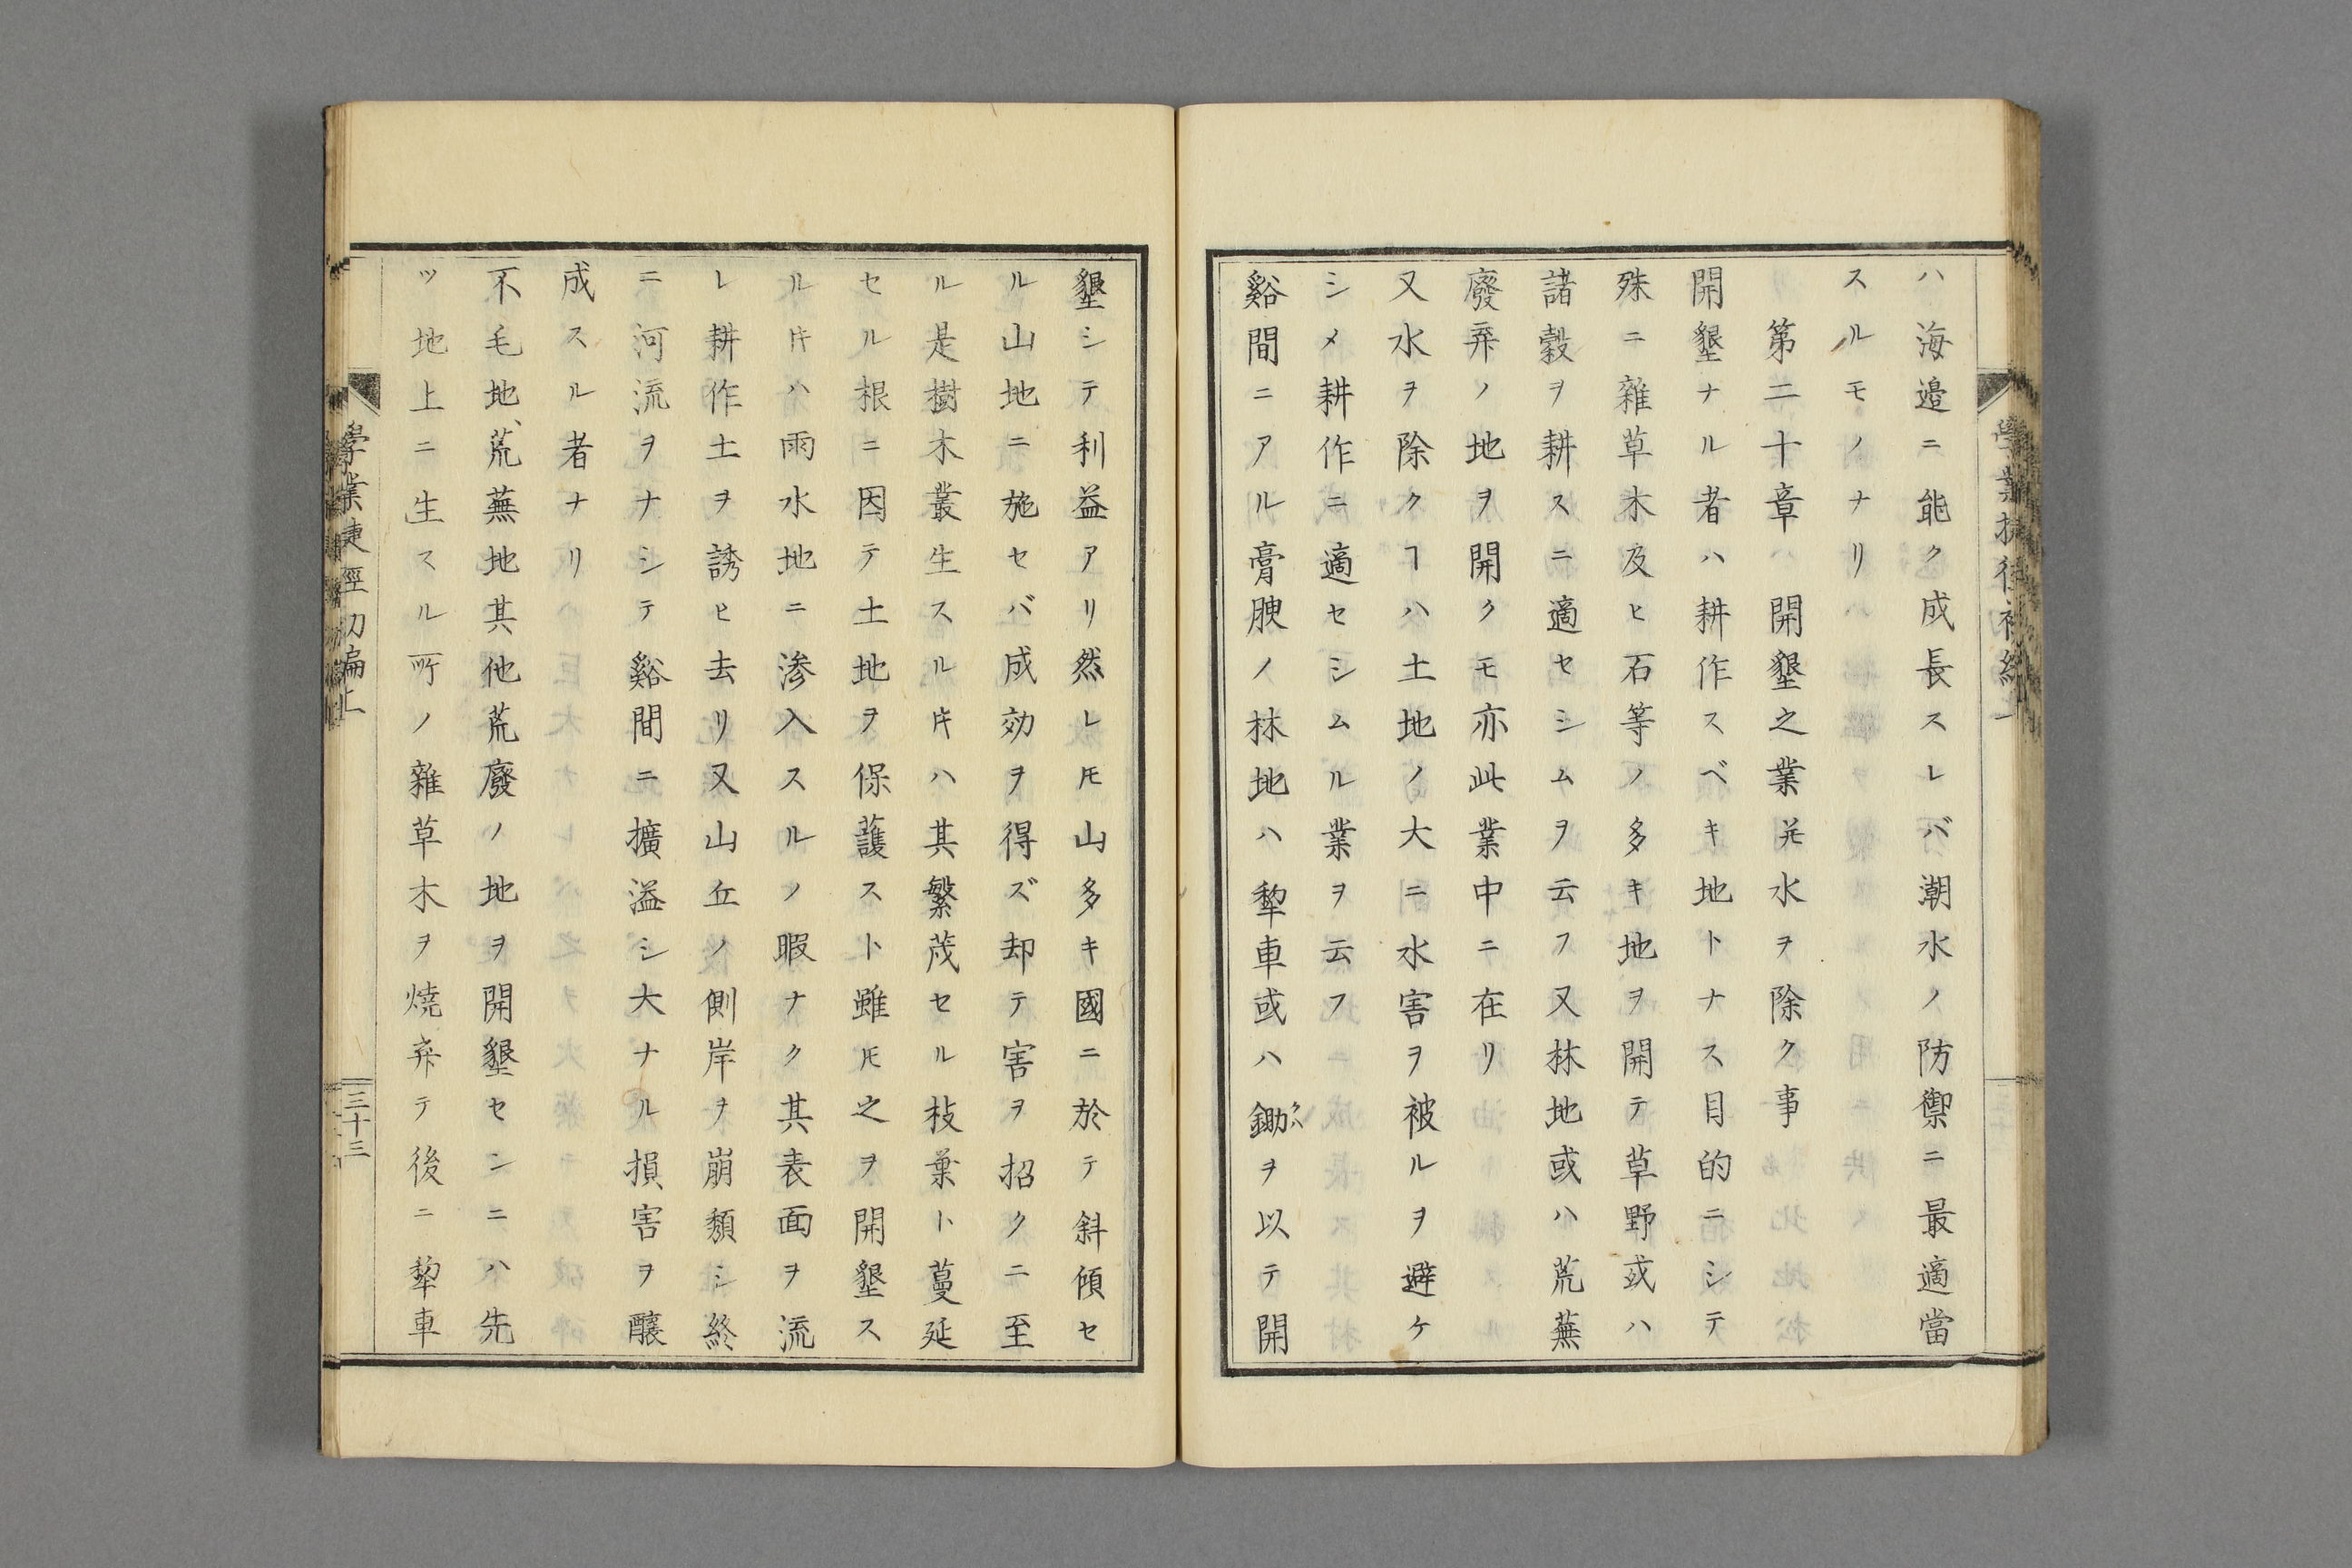 ハ海邉ニ能ク成長スレバ潮水ノ防禦ニ最適當
スルモノナリ
第二十章 開墾之業並水ヲ除ク事
開墾ナル者ハ耕作スベキ地トナス目的ニシテ
殊ニ雜草木及ヒ石等ノ多キ地ヲ開テ草野或ハ
諸穀ヲ耕スニ適セシムヲ云フ又林地或ハ荒蕪
廢弃ノ地ヲ開クモ亦此業中ニ在リ
又水ヲ除クヿハ土地ノ大ニ水害ヲ被ルヲ避ケ
シメ耕作ニ適セシムル業ヲ云フ
谿間ニアル膏腴ノ林地ハ犂車或ハ鋤ヲ以テ開
墾シテ利益アリ然レ𪜈山多キ國ニ於テ斜傾セ
ル山地ニ施セバ成効ヲ得ズ却テ害ヲ招クニ至
ル是樹木叢生スルㇳキハ其繁茂セル枝葉ト蔓延
セル根ニ因テ土地ヲ保護スト雖𪜈之ヲ開墾ス
ルㇳキハ雨水地ニ滲入スルノ暇ナク其表面ヲ流
レ耕作土ヲ誘ヒ去リ又山丘ノ側岸ヲ崩頽シ終
ニ河流ヲナシテ谿間ニ擴溢シ大ナル損害ヲ釀
成スル者ナリ
不毛地、荒蕪地其他荒廢ノ地ヲ開墾センニハ先
ツ地上ニ生スル所ノ雜草木ヲ燒弃テ後ニ犂車
學業捷徑初編上
三十三